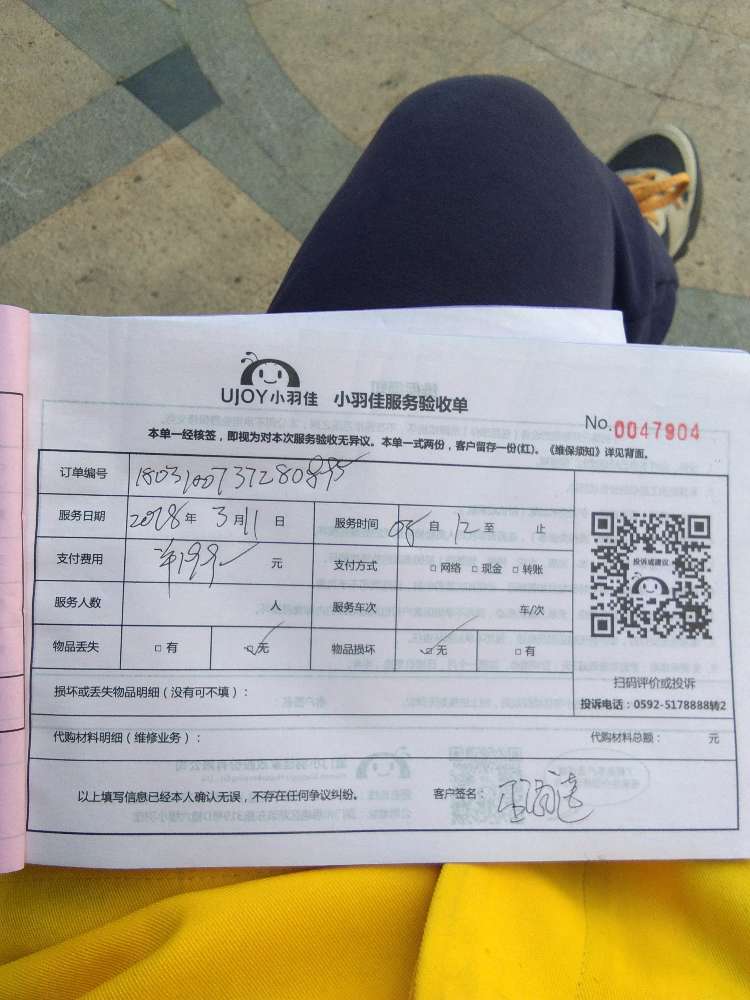 UJOY小羽佳 小羽佳服务验收单
No.0047904
本单一经核签，即视为对本次服务验收无异议。本单一式两份，客户留存一份(红)。《维保须知》详见背面。
订单编号 1803100737280895
服务日期 2018年3月11日 服务时间 08自12至 止
支付费用 半199 元 支付方式 □网络 □现金 □转账
投诉或建议
服务人数 人 服务车次 车/次
物品丢失 □有 □无 物品损坏 □无 □有
扫码评价或投诉
损坏或丢失物品明细（没有可不填）：
投诉电话：0592-5178888转2
代购材料明细（维修业务）： 代购材料总额： 元
以上填写信息已经本人确认无误，不存在任何争议纠纷。 客户签名：